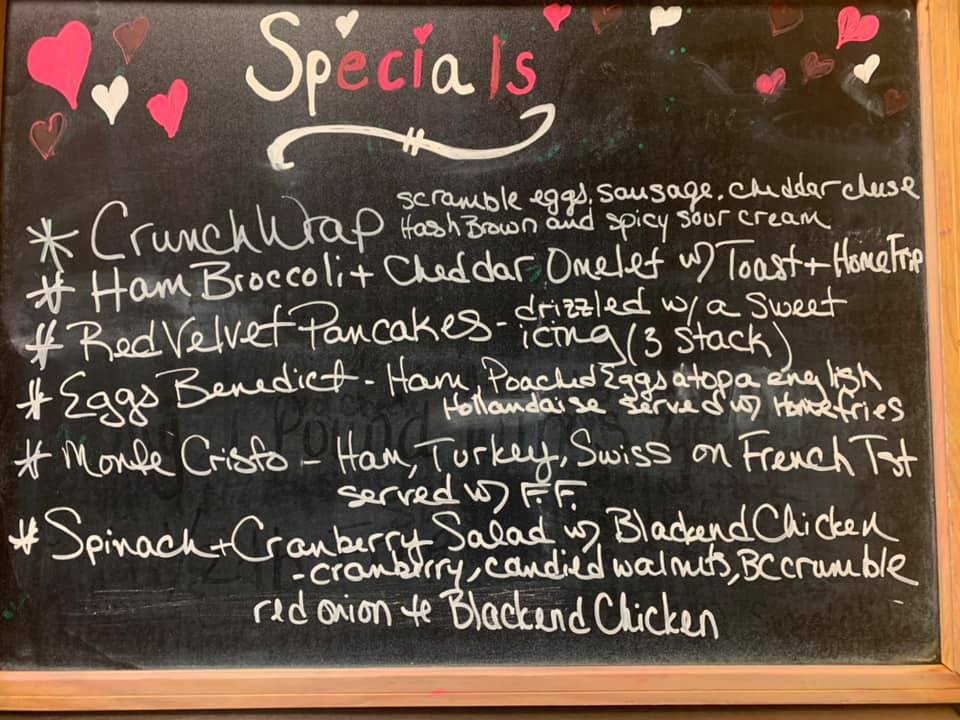 Specials
* CrunchWrap scramble eggs, sausage, cheddar cheese
Hash Brown and spicy sour cream
# Ham Broccoli + Cheddar Omelet w/ Toast + Home Frip
# Red Velvet Pancakes - drizzled w/ a Sweet
icing (3 Stack)
# Eggs Benedict - Ham, Poached Eggs atop a english
Hollandaise served w/ Homefries
# Monte Cristo - Ham, Turkey, Swiss on French Tst
served w/ F.F.
# Spinach + Cranberry Salad w/ Blackend Chicken
- cranberry, candied walnuts, BC crumble
red onion + Blackend Chicken